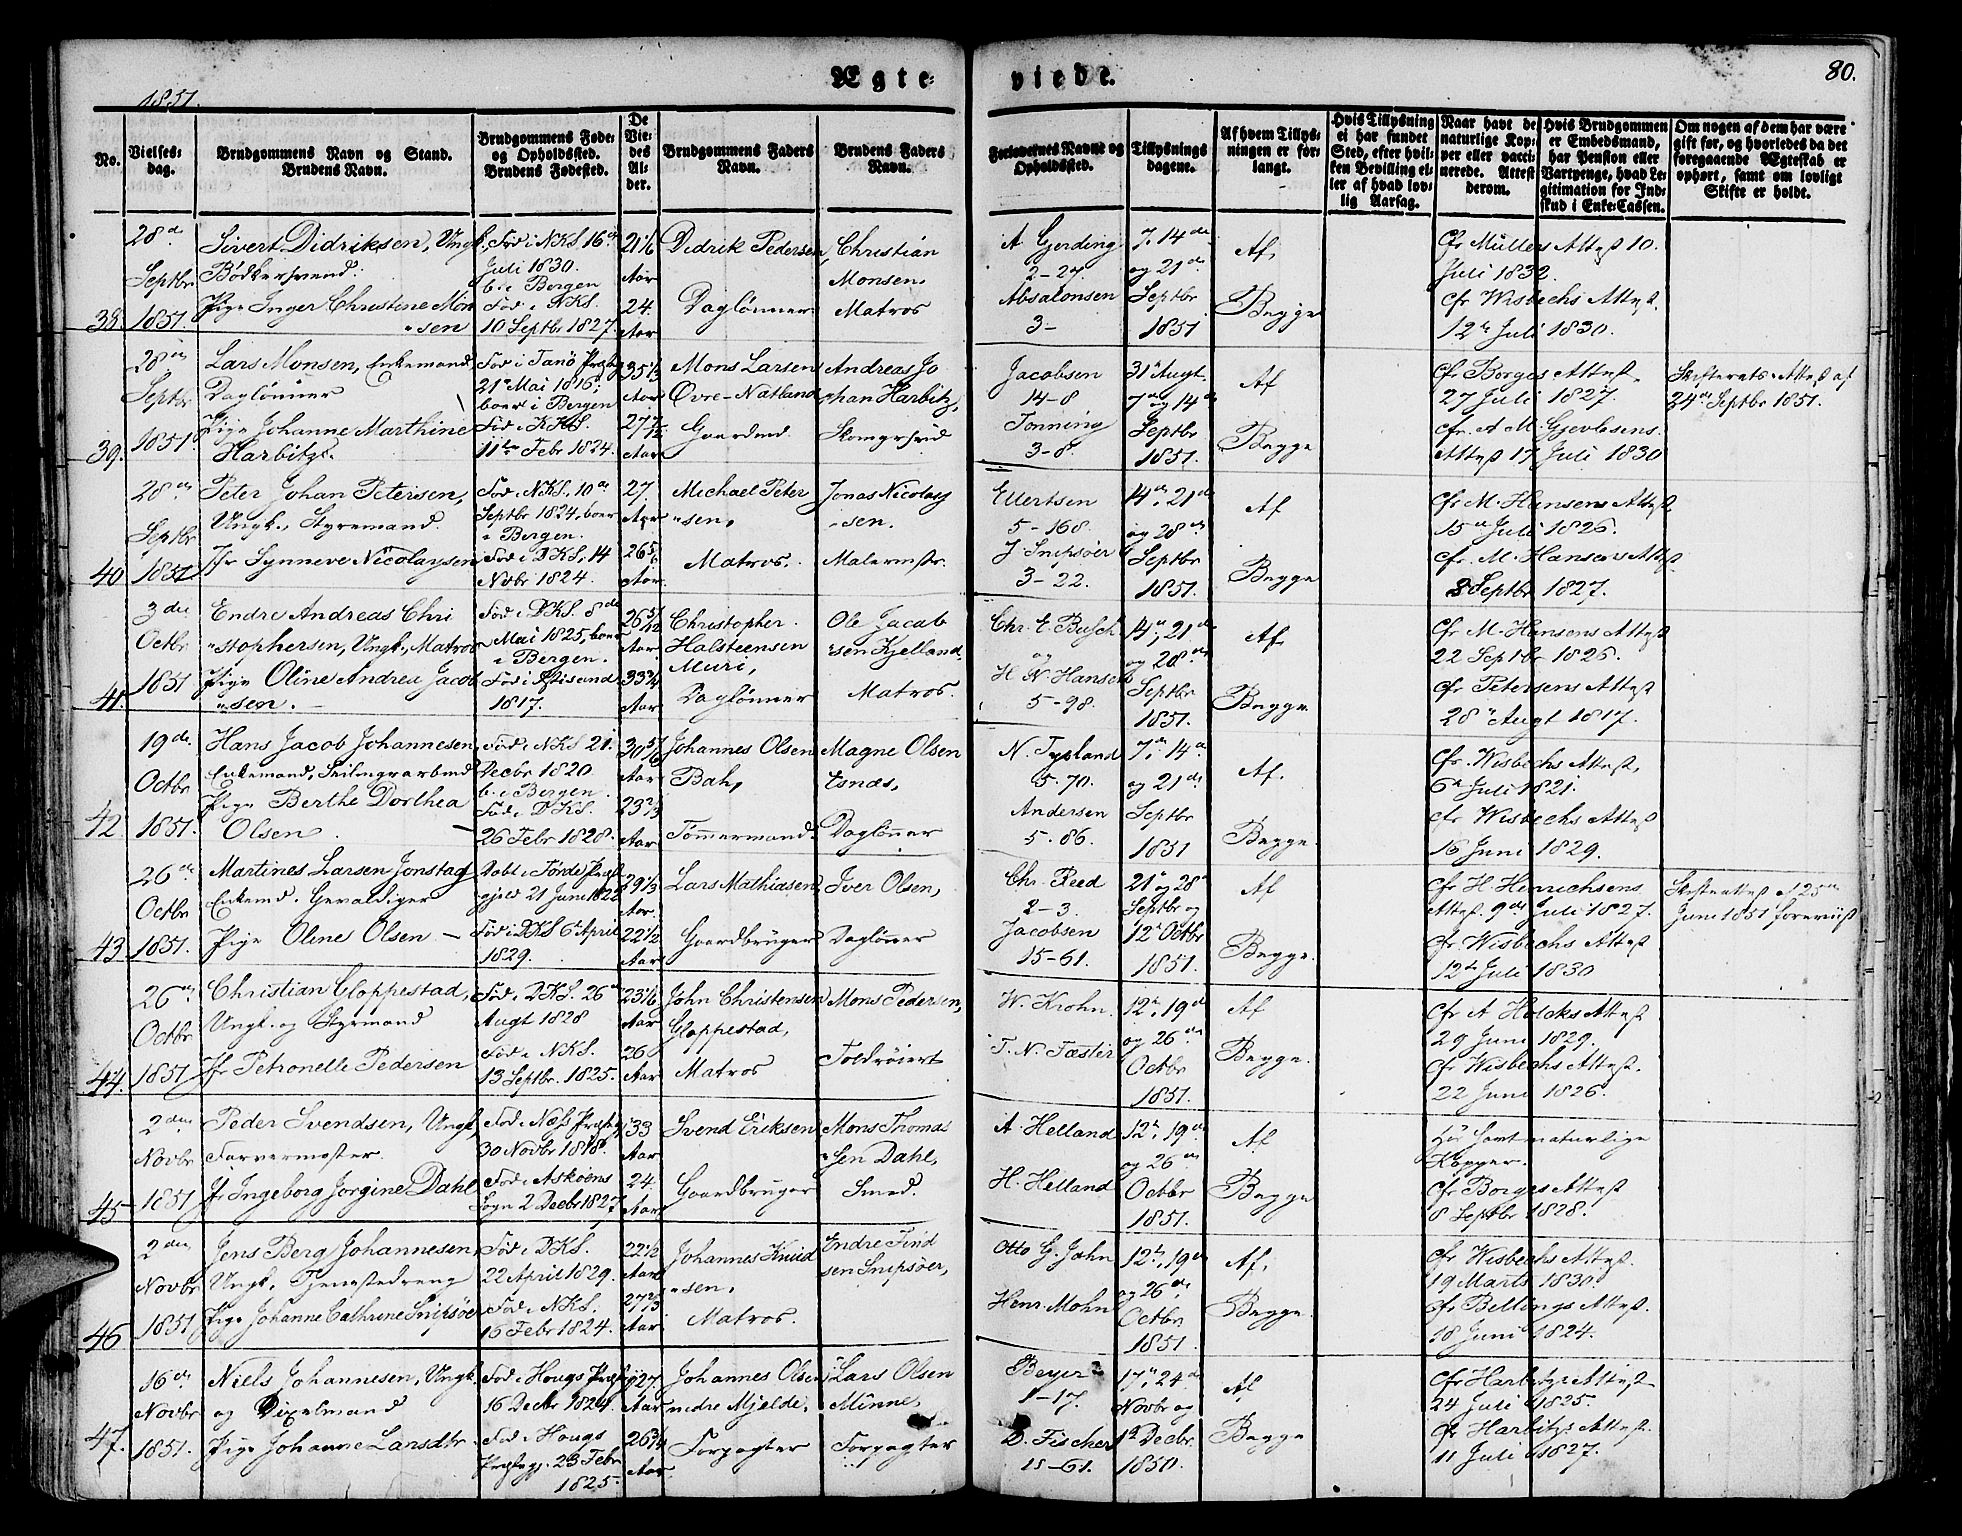 1851.
Ægte-
viede.
80.
No.
Vielses-
dag.
Brudgommens Navn og Stand.
Brudens Navn.
Brudgommens Føde-
og Opholdssted.
Brudens Fødested.
De
Vie-
des
Al-
der.
Brudgommens Faders
Navn.
Brudens Faders
Navn.
Forlovernes Navne og
Opholdssted.
Tillysnings
dagene.
Af hvem Tillys-
ningen er for-
langt.
Hvis Tillysning
ei har fundet
Sted, efter hvil-
ken Bevilling el-
ler af hvad lov-
lig Aarsag.
Naar havt de
naturlige Kop-
per eller vacci-
nerede. Attest
derom.
Hvis Brudgommen
er Embedsmand,
har Pension eller
Vartpenge, hvad Le-
gitimation for Ind-
skud i Enke-Cassen.
Om nogen af dem har være
gift før, og hvorledes da det
foregaaende Ægteskab er
ophørt, samt om lovligt
Skifte er holdt.
38.
28de
Septbr
1851.
Sivert Didriksen, Ungk.,
Bødkersvend.
Pige Inger Christine Mon
"sen
Fød i NKS. 16de
Juli 1830.
b. i Bergen
Fød i NKS.
10 Septbr 1827.
21 1/6
Aar
24.
Aar
Didrik Pedersen,
Daglønner
Christian
Monsen.
Matros
A Gjerding
2-27.
Absalonsen
3-
7, 14de
og 21de
Septbr
1851
Af
Begge
Cfr Müllers Attest 10.
Juli 1832.
Cfr Wisbechs Attest.
12te Juli 1830.
39.
28de
Septbr
1851.
Lars Monsen, Enkemand,
Daglønner
Pige Johanne Marthine
Harbitz.
Fød i Fanø Præstg
21de Mai 1816,
boer i Bergen
Fød i KKS.
11te Febr 1824.
35 1/3
Aar
27 1/2
Aar
Mons Larsen
Øvre-Natland
Gaardmd.
Andreas Jo
"han Harbitz,
Skomgrsvd
Jacobsen
14-8.
Tonning
3-8.
31te Augt
7de og 14de
Septbr
1851.
Af
Begge
Cfr Borges Attest.
27 Juli 1827.
cfr. A M. Gjevlesens
Attest 17 Juli 1830
Skifterets Attest af
24de Septbr 1851.
40
28de
Septbr
1851
Peter Johan Petersen,
Ungk., Styremand.
Jfr Synneve Nicolaysen
Fød i NKS, 10de
Septbr 1824, boer
i Bergen.
Fød i DKS, 14
Novbr 1824.
27.
Aar
26 5/6
Aar
Michael Peter
"sen,
Matros.
Jonas Nicolay
"sen.
Malermstr.
Ellertsen
5-168.
J. Snipsøer
3-22.
14de, 21de
og 28de
Septbr
1851.
Af
Begge
Cfr M. Hansens Attest
15de Juli 1826.
Cfr. M. Hansens Attest
8 Septbr 1827.
41.
3die
Octbr
1851
Endre Andreas Chri
"stophersen, Ungk., Matros
Pige Oline Andrea Jacob
"sen.
Fød i DKS. 8de
Mai 1825, boer
i Bergen.
Fød i Xstisand
1817.
26 5/12
Aar.
33 3/4
Aar
Christopher
Halsteensen
Muri,
Dagløner
Ole Jacob
"sen Kjelland.
Matros.
Chr. E. Busch
og
H. N. Hansen
5-98.
14de, 21de
og 28de
Septbr
1851.
Af
Begge
Cfr M. Hansens Attest
22 Septbr 1826.
Cfr Petersens Attest
28de Augt 1817.
42
19de
Octbr
1851.
Hans Jacob Johannesen
Enkemand, Seilmgrarbmd
Pige Berthe Dorthea
Olsen
Fød i NKS 21.
Decbr 1820.
b. i Bergen.
Fød i DKS.
26 Febr 1828.
30 5/6
Aar
23 2/3
Aar
Johannes Olsen
Bah,
Tømmermand
Magne Olsen
Esnæs,
Dagløner
N. Tysland
5-70.
Andersen
5-86.
7de, 14de
og 21de
Septbr
1851
Af.
Begge.
Cfr. Wisbechs Attest.
6te Juli 1821.
cfr Wisbechs Attest
16 Juni 1829.
43
26de
Octbr
1851.
Martines Larsen Jonstag
Enkemd. Gevaldiger
Pige Oline Olsen
Døbt i Førde Præst
gjeld 21 Juni 1822
Fød i DKS 6te April
1829.
29 1/3
Aar.
22 1/2
Aar
Lars Mathiasen
Gaardbruger
Iver Olsen,
Dagløner
Chr. Reed
2-3.
Jacobsen
15-61.
21de og 28de
Septbr og
12te Octbr
1851.
Af
Begge.
Cfr H Henrichsens
Attest. 9de Juli 1827.
Cfr. Wisbechs Attest
12te Juli 1830
Skifteattest af 25de
Juni 1851 foreviist
44.
26de
Octbr
1851
Christian Gloppestad,
Ungk. og Styrmand
Jfr Petronelle Pedersen
Fød i DKS. 26de
Augt 1828
Fød i NKS.
13 Septbr. 1825.
23 1/6
Aar
26
Aar
John Christensen
Gloppestad,
Matros
Mons Pedersen,
Toldroiert
W. Krohn.
T. N. Fæster
12te, 19de
og 26de
Octbr
1851.
Af
Begge.
Cfr A Holcks Attest
29 Juni 1829.
Cfr. Wisbechs Attest.
22 Juni 1826.
45
2den
Novbr
1851
Peder Svendsen, Ungk,
Farvermester.
Jfr Ingeborg Jorgine Dahl
Fød i Næss Præstg
30 Novbr 1818.
Fød i Askøens
Sogn 2 Decbr 1827
33
Aar
24.
Aar
Svend Eriksen
Gaardbruger
Mons Thomas
"sen Dahl,
Smed.
A. Helland
H. Helland
12te, 19de
og 26de
Octbr
1851.
Af
Begge
har havt naturlige
Kopper.
Cfr Borges Attest
8 Septbr 1828.
46
2den
Novbr
1851
Jens Berg Johannesen
Ungk, Tjenestedreng
Pige Johanne Cathrine Snipsøer
Fød i DKS.
22 April 1829.
Fød i NKS.
16 Febr 1824.
22 1/2
Aar
27 2/3
Aar
Johannes Knud
"sen.
Matros.
Endre Find
sen Snipsøer,
Otto G. Jahn
Henr. Mohn
12te, 19de
og 26de
Octbr
1851.
Af.
Begge.
Cfr Wisbechs Attest.
19 Marts 1830.
cfr Bellings Attest.
18 Juni 1824.
47.
16de
Novbr
1851.
Niels Johannesen, Ungk.
og Pixelmand
Pige Johanne Larsdtr
Fød i Hougs Præstg
16 Decbr 1824.
Fød i Hougs
Præstegj. 23 Febr
1825.
27.
Aar
26 3/4
Aar
Johannes Olsen
nedre Mjelde,
Forpagter
Lars Olsen
Minne,
Forpagter
Beyer
1-17.
D. Fischer
15-61.
17de, 24de
Novbr og
1te Decbr
1850.
Af
Begge
Cfr Harbitz Attest
24 Juli 1825.
Cfr Harbitz Attest.
11 Juli 1827.